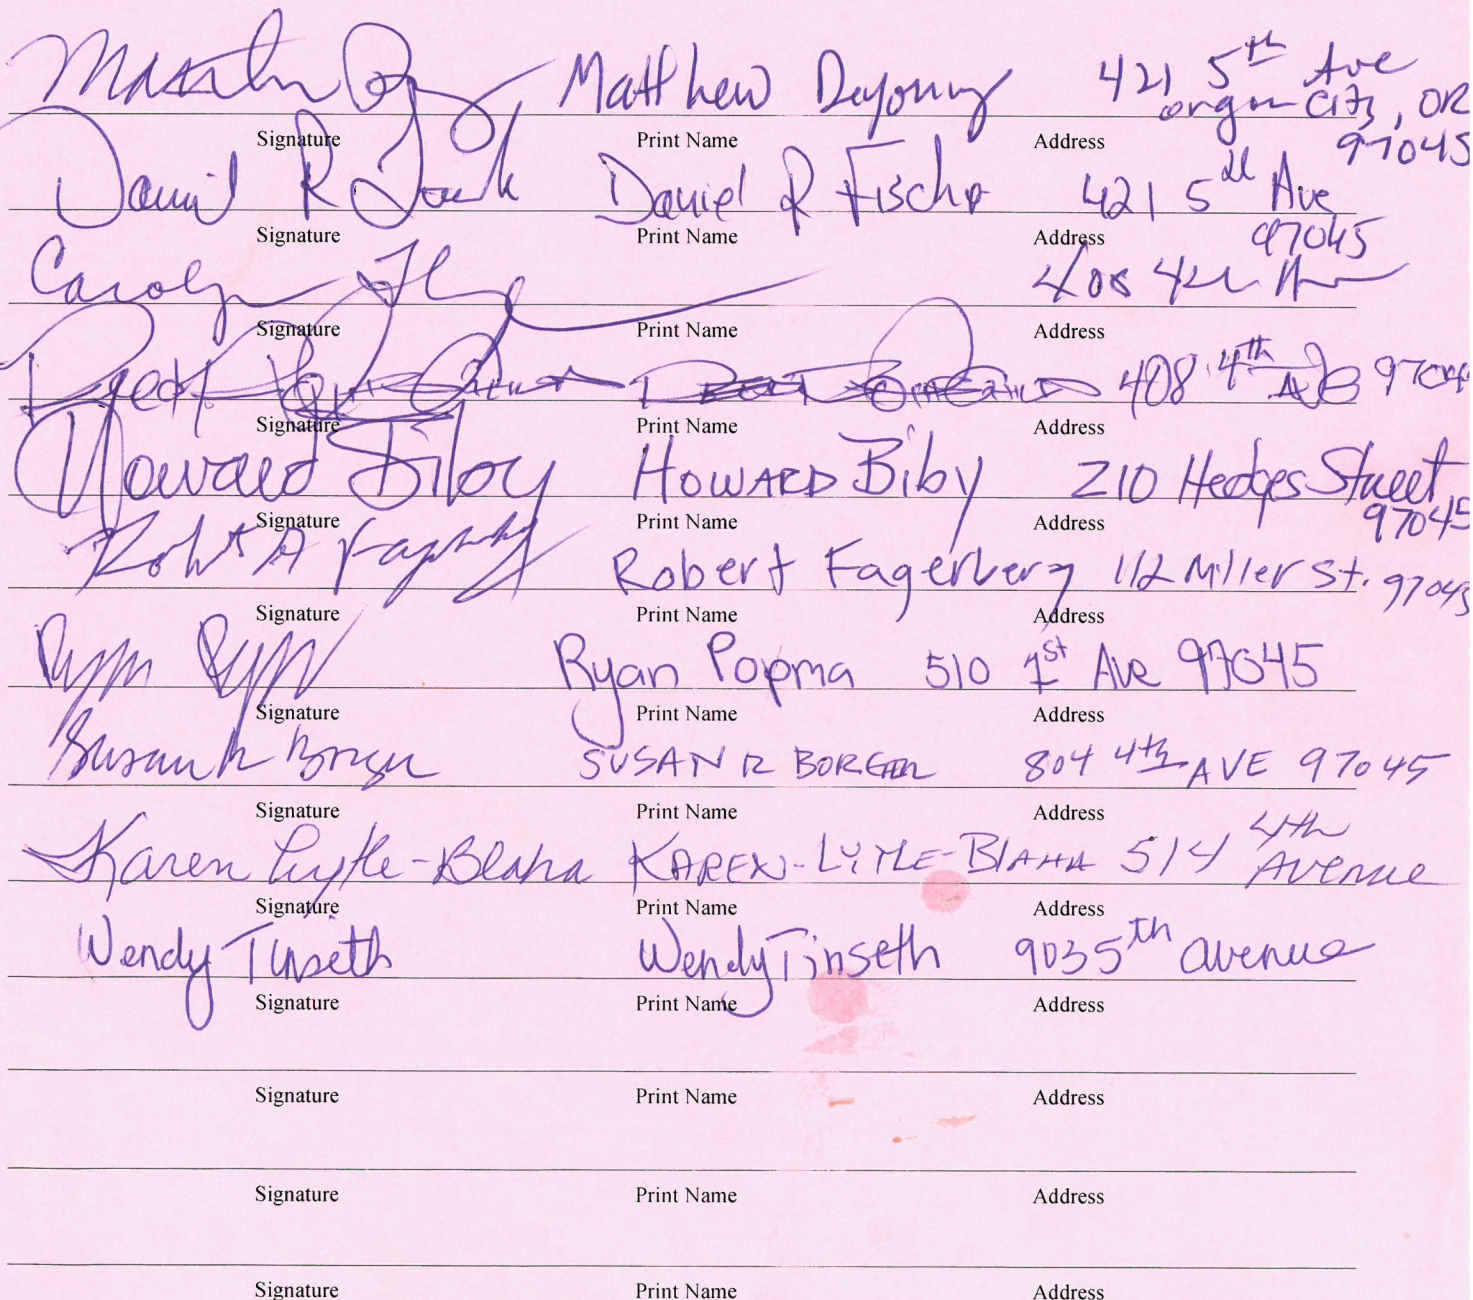 Matthew Deyoung 421 5th Ave
Oregon City, OR
Signature Print Name Address 97045
Daniel R Daniel R Fischer 421 5th Ave
Signature Print Name Address 97045
Carolyn 408 4th Ave
Signature Print Name Address
408 4th Ave 97045
Signature Print Name Address
Howard Biby HOWARD Biby 210 Hedges Street,
Signature Print Name Address 97045
Robert A Fagerberg Robert Fagerberg 112 Miller St. 97045
Signature Print Name Address
Ryan Popma 510 1st Ave 97045
Signature Print Name Address
Susan R Borger SUSAN R BORGER 804 4th AVE 97045
Signature Print Name Address
Karen Lytle-Blaha KAREN-LYTLE-BlAHA 514 4th Avenue
Signature Print Name Address
Wendy Tinseth Wendy Tinseth 903 5th avenue
Signature Print Name Address
Signature Print Name Address
Signature Print Name Address
Signature Print Name Address